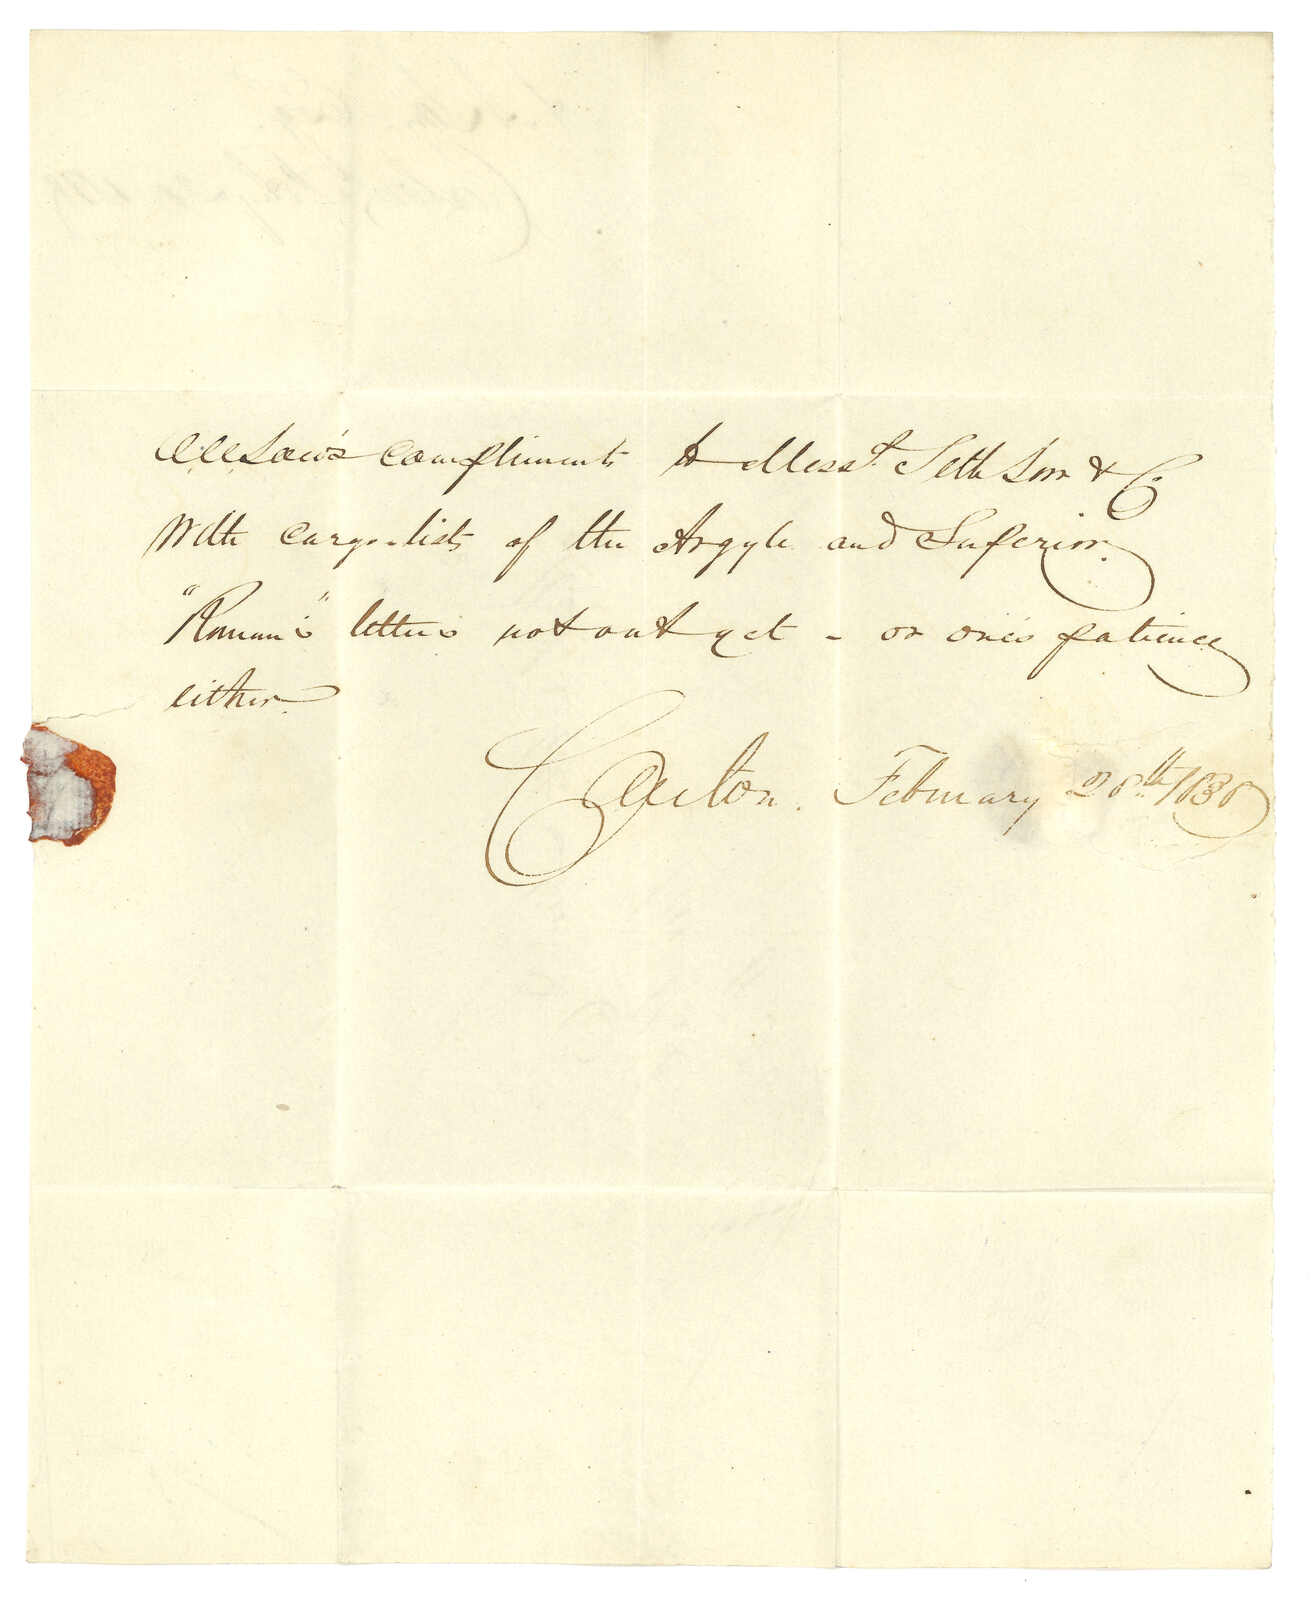 compliments to Mess.rs Seth Low & Co
with cargo-lists of the Argyle and Superior.
"Roman's" letters not out yet - or one's patience
either.
Canton. February 28th 1838